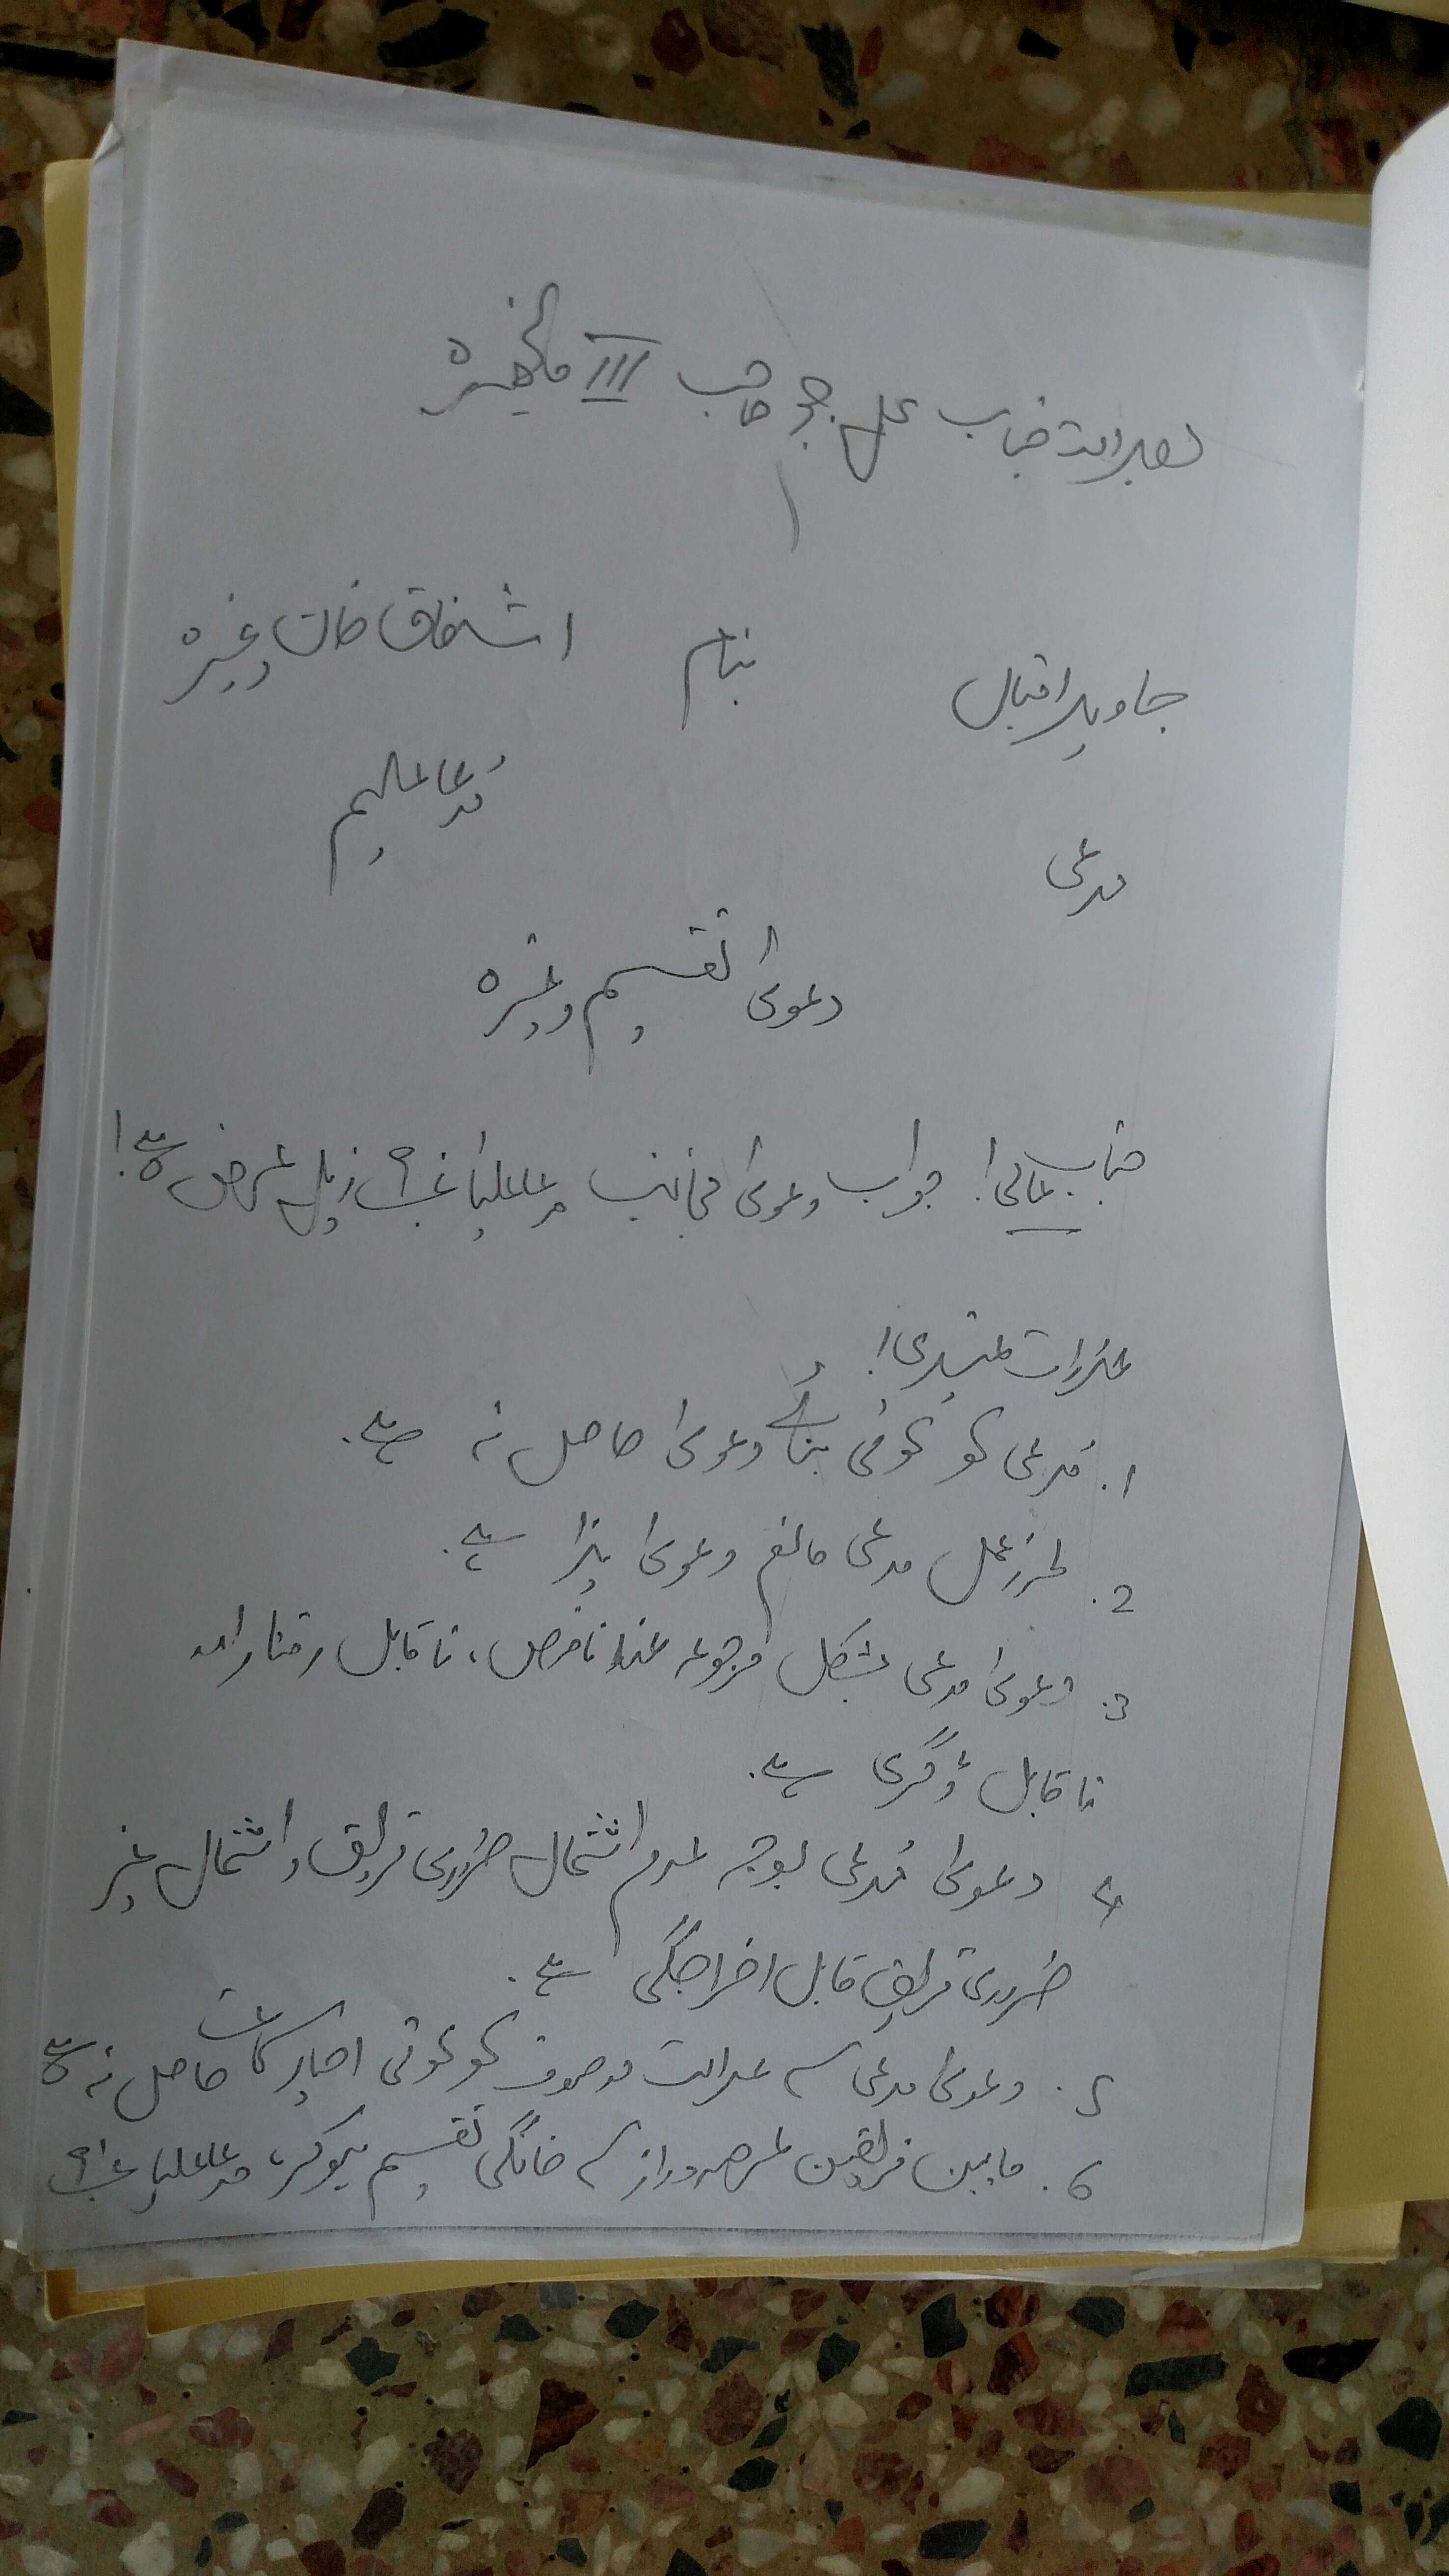 بعدالت جناب سول جج صاحب III مانسہرہ
جاوید اقبال بنام اشفاق خان وغیرہ
مدعی مدعا علیہم
دعویٰ تقسیم وغیرہ
جناب عالی! جواب دعویٰ منجانب مدعاعلیہ ذیل عرض ہے!
عذرات تمہیدی!
1. مدعی کو کوئی بنائے دعویٰ حاصل نہ ہے.
2. طرز عمل مدعی مانع دعویٰ ہذا ہے.
3. دعویٰ مدعی بشکل مرجوعہ غلط ناقص، ناقابل رفتار اور
ناقابل ڈگری ہے.
4 دعویٰ مدعی بوجہ عدم اشتمال ضروری فریق و اشتمال غیر
ضروری فریق قابل اخراجگی ہے.
5. دعویٰ مدعی سے عدالت موصوف کو کوئی اختیار سماعت حاصل نہ ہے
6. مابین فریقین عرصہ دراز سے خانگی تقسیم ہوکر، مدعاعلیہ